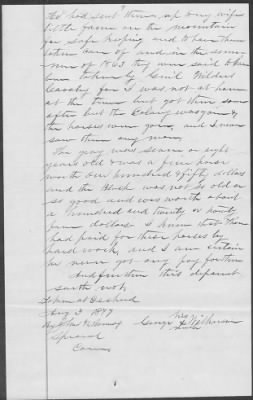 He had sent them up to my wifes
little farm on the mountain
for safe keeping and to have them
taken care of and in the summer
of 1863 they were said to have
been taken by Genl Wilders
Cavalry for I was not at home
at the time but got there soon
after but the Colony was gone &
the horses were gone, and I never
saw them any more.
The gray was seven or eight
years old & was a fine horse
worth one hundred & fifty dollars
and the Black was not so old or
so good and was worth about
a hundred and twenty or twenty
five dollars. I know that he
had paid for these horses by
hard work, and I am certain
he never got any pay for them
And further this deponent
saith not.
Taken at Decherd
Aug 3 1877
George his X mark Wilkerson
Special
Com